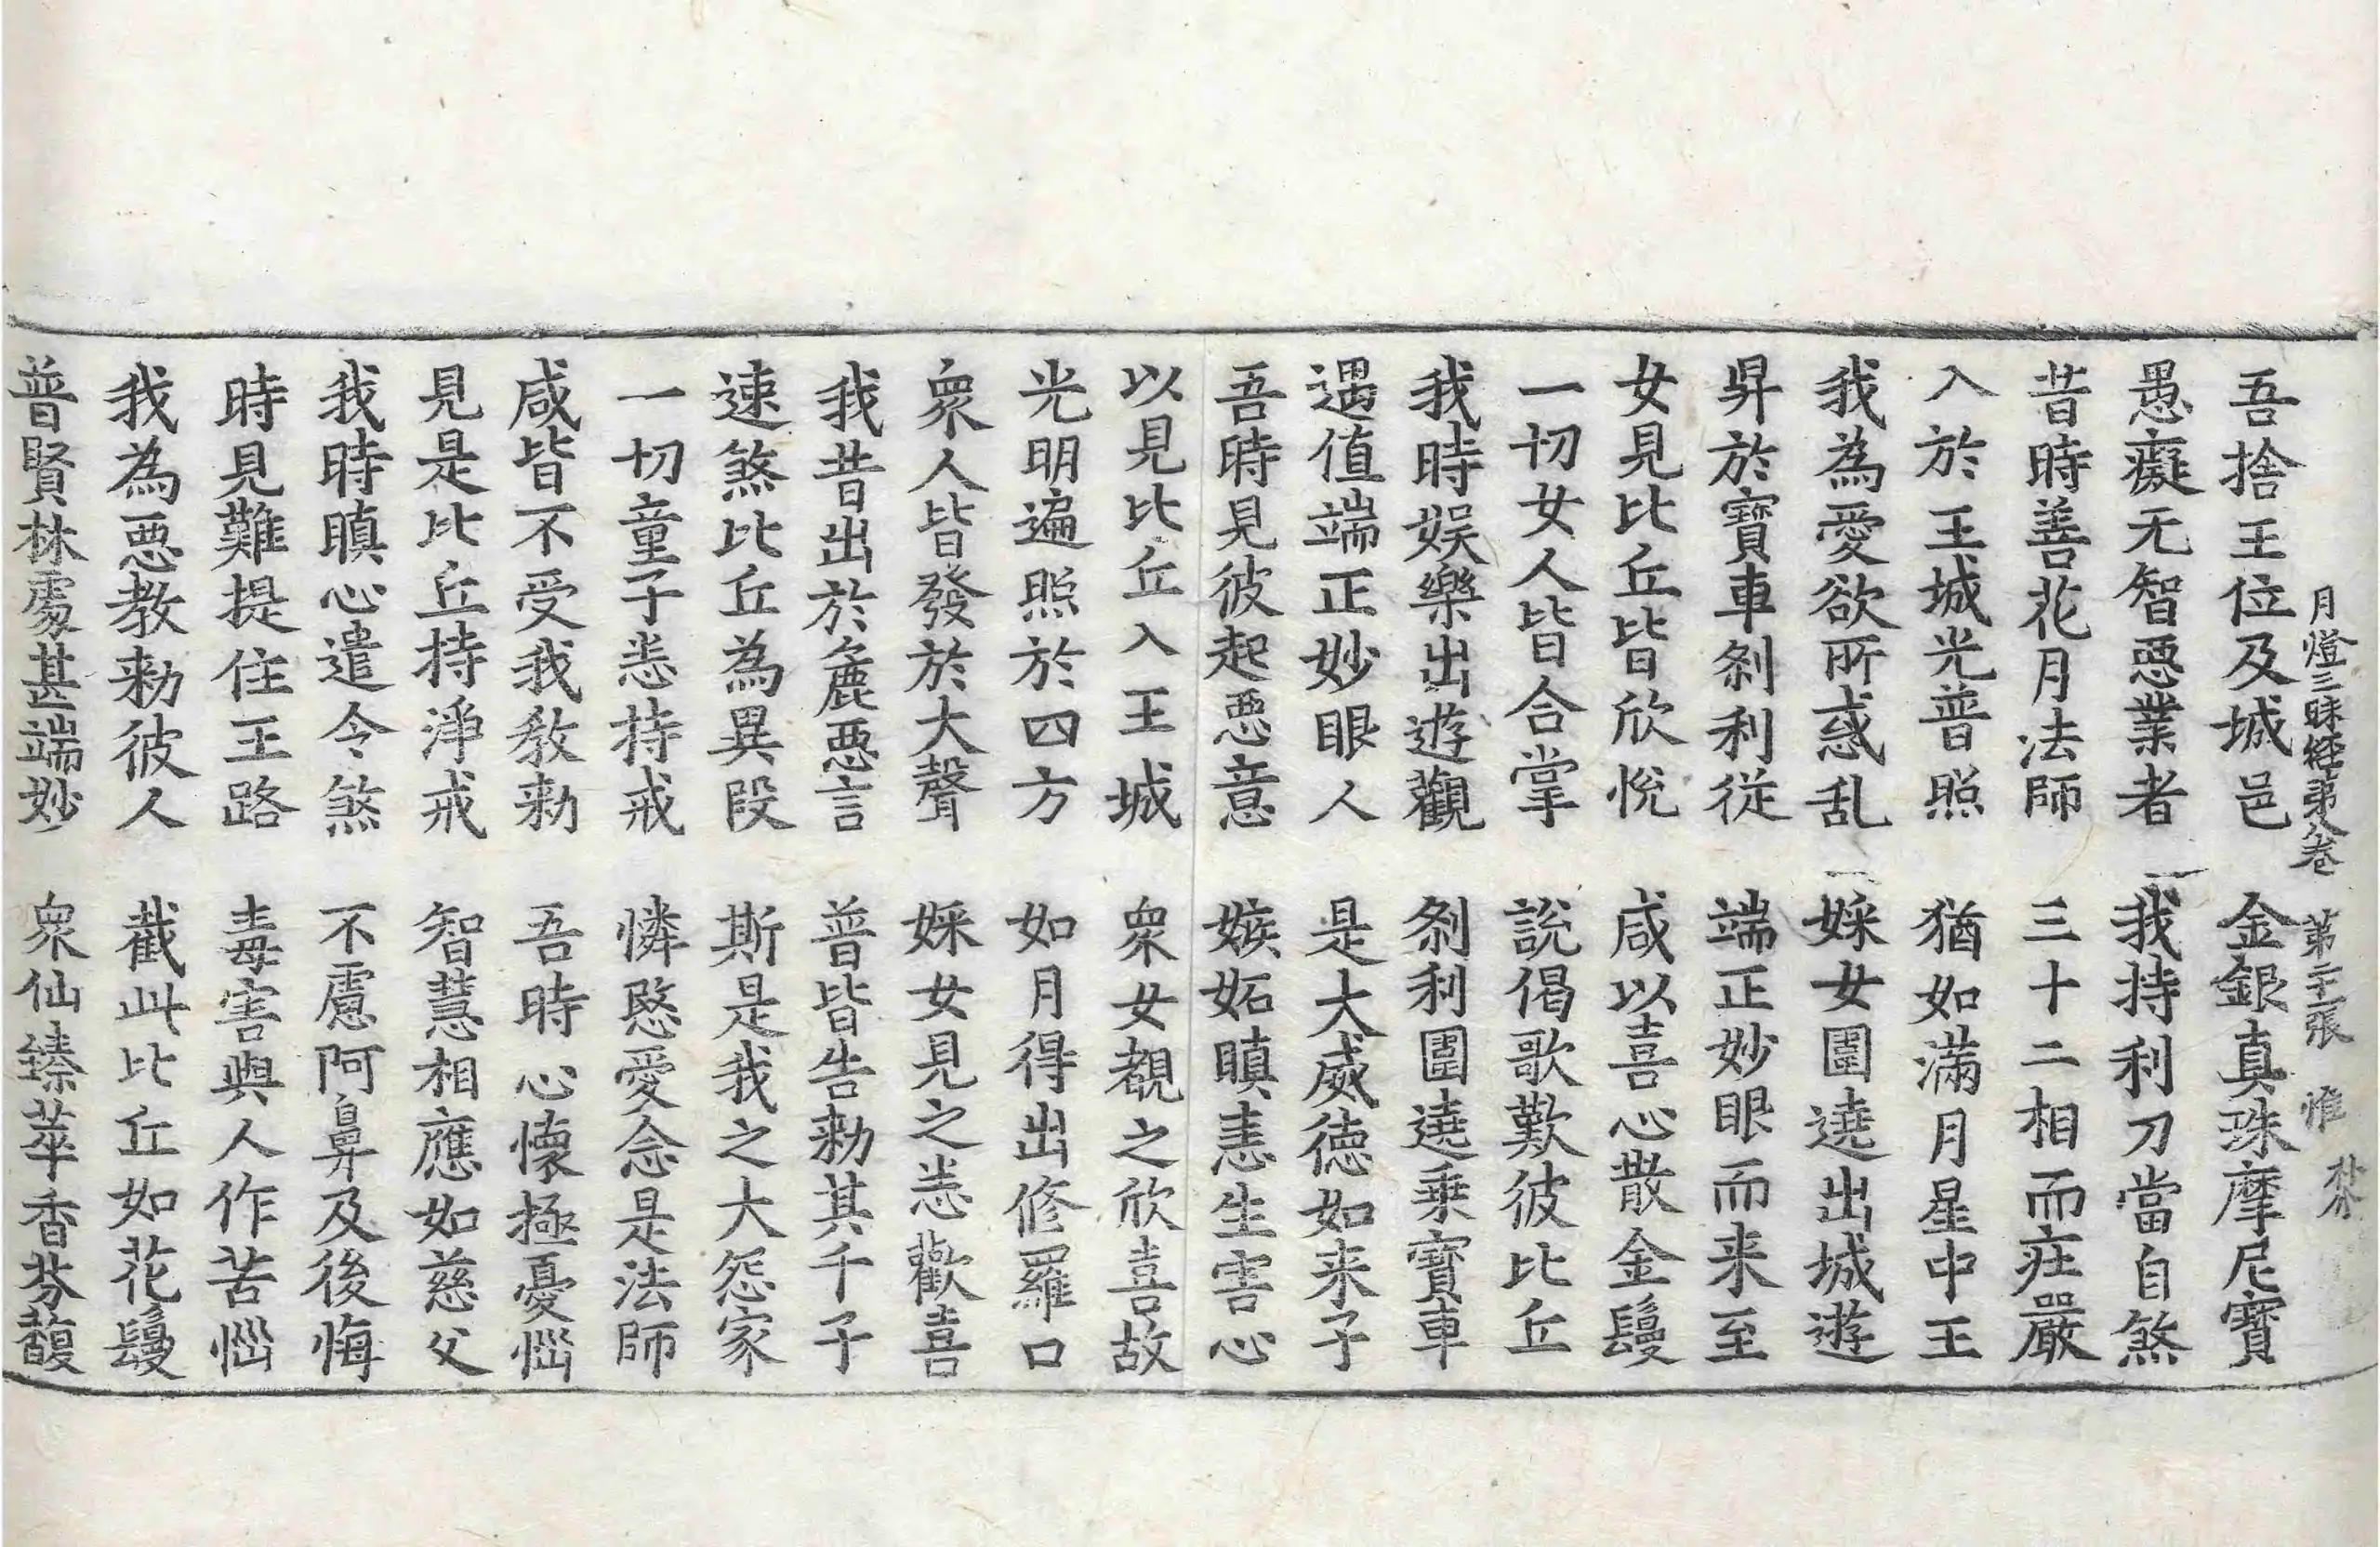 月燈三昧經第八卷　第二十張　惟
吾捨王位及城邑　金銀真珠摩尼寶
愚癡无智惡業者　我持利刀當自煞
昔時善花月法師　三十二相而莊嚴
入於王城光普照　猶如滿月星中王
我為愛欲所惑乱　婇女圍遶出城遊
昇於寶車剎利從　端正妙眼而来至
女見比丘皆欣悅　咸以喜心散金鬘
一切女人皆合掌　說偈歌歎彼比丘
我時娛樂出遊觀　剎利圍遶乗寶車
遇值端正妙眼人　是大威德如来子
吾時見彼起惡意　嫉妬瞋恚生害心
以見比丘入王城　衆女覩之欣喜故
光明遍照於四方　如月得出修羅口
衆人皆發於大聲　婇女見之悉歡喜
我昔出於麁惡言　普皆告勑其千子
速煞比丘為異段　斯是我之大怨家
一切童子悉持戒　憐愍愛念是法師
咸皆不受我教勑　吾時心懷極憂惱
見是比丘持淨戒　智慧相應如慈父
我時瞋心遣令煞　不慮阿鼻及後悔
時見難提住王路　毒害與人作苦惱
我為惡教勑彼人　截此比丘如花鬘
普賢林處甚端妙　衆仙臻萃香芬馥